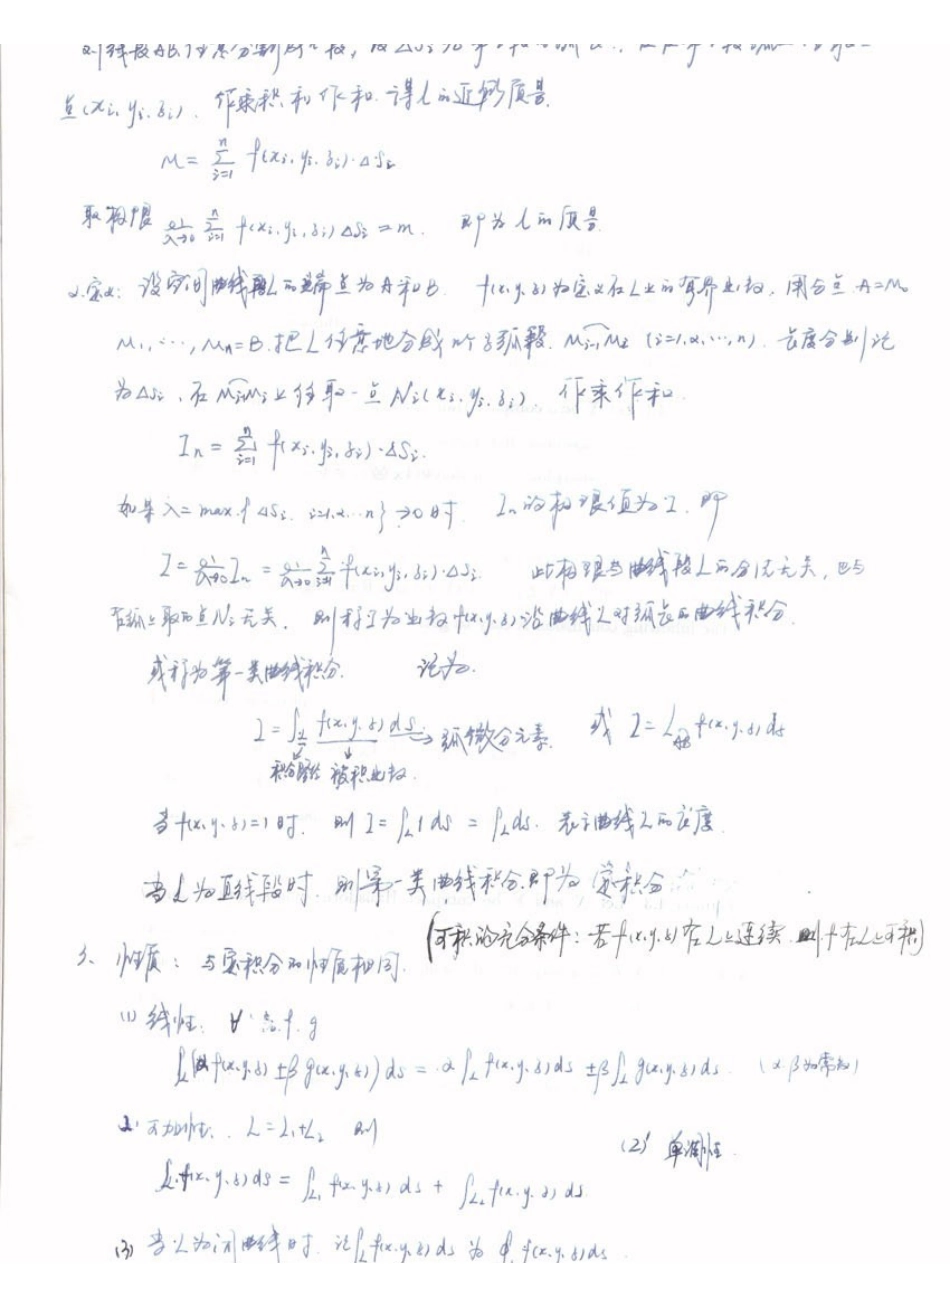 点(xi, yi, zi), 作乘积和作和 得L的近似质量.
M = Σ_{i=1}^{n} f(xi, yi, zi)·ΔSi
取极限 lim_{λ→0} Σ_{i=1}^{n} f(xi, yi, zi)ΔSi = m. 即为L的质量
2. 定义: 设空间曲线段L的端点为A和B. f(x,y,z)为定义在L上的有界函数, 用分点 A=M₀
M₁, ⋯, Mn=B 把L任意地分成n个子弧段. M_{i-1}Mi (i=1,2,⋯,n). 长度分别记
为ΔSi, 在M_{i-1}Mi上任取一点Ni(xi, yi, zi), 作乘作和.
In = Σ_{i=1}^{n} f(xi, yi, zi)·ΔSi.
如果 λ=max{ΔSi, i=1,2…n}→0时. In的极限值为I. 即
I = lim_{λ→0} In = lim_{λ→0} Σ_{i=1}^{n} f(xi, yi, zi)·ΔSi. 此极限与曲线段L的分法无关, 也与
在弧上取的点Ni无关, 则称I为函数f(x,y,z)沿曲线L对弧长的曲线积分.
或称为第一类曲线积分. 记为.
I = ∫_L f(x,y,z) ds → 弧微分元素. 或 I = ∫_{AB} f(x,y,z) ds
积分路径 被积函数.
当f(x,y,z)=1时. 则 I = ∫_L 1 ds = ∫_L ds. 表示曲线L的长度.
当L为直线段时, 则第一类曲线积分即为定积分
(可积的充分条件: 若f(x,y,z)在L上连续 则f在L上可积)
3、性质: 与定积分的性质相同.
(1) 线性: ∀ f. g
∫_L (αf(x,y,z) ± βg(x,y,z)) ds = α∫_L f(x,y,z)ds ± β∫_L g(x,y,z)ds. (α.β为常数)
2. 可加性. L=L₁+L₂ 则
(2)' 单调性.
∫_L f(x,y,z)ds = ∫_{L₁} f(x,y,z) ds + ∫_{L₂} f(x,y,z) ds.
(3) 当L为闭曲线时. 记∫_L f(x,y,z)ds 为 ∮ f(x,y,z)ds.